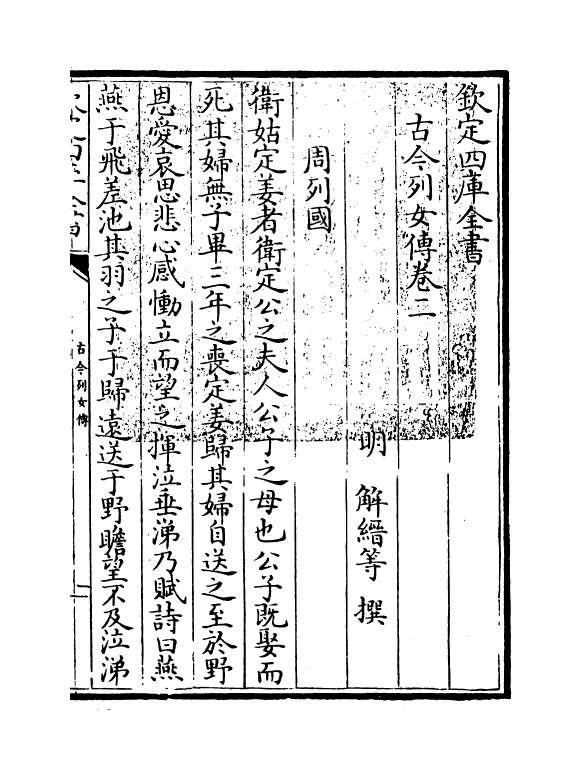 欽定四庫全書
古今列女傳卷二
明 解縉等 撰
周列國
衛姑定姜者衛定公之夫人公子之母也公子既娶而
死其婦無子畢三年之喪定姜歸其婦自送之至於野
恩愛哀思悲心感慟立而望之揮泣垂涕乃賦詩曰燕
燕于飛差池其羽之子于歸遠送于野瞻望不及泣涕
古今列女傳
一